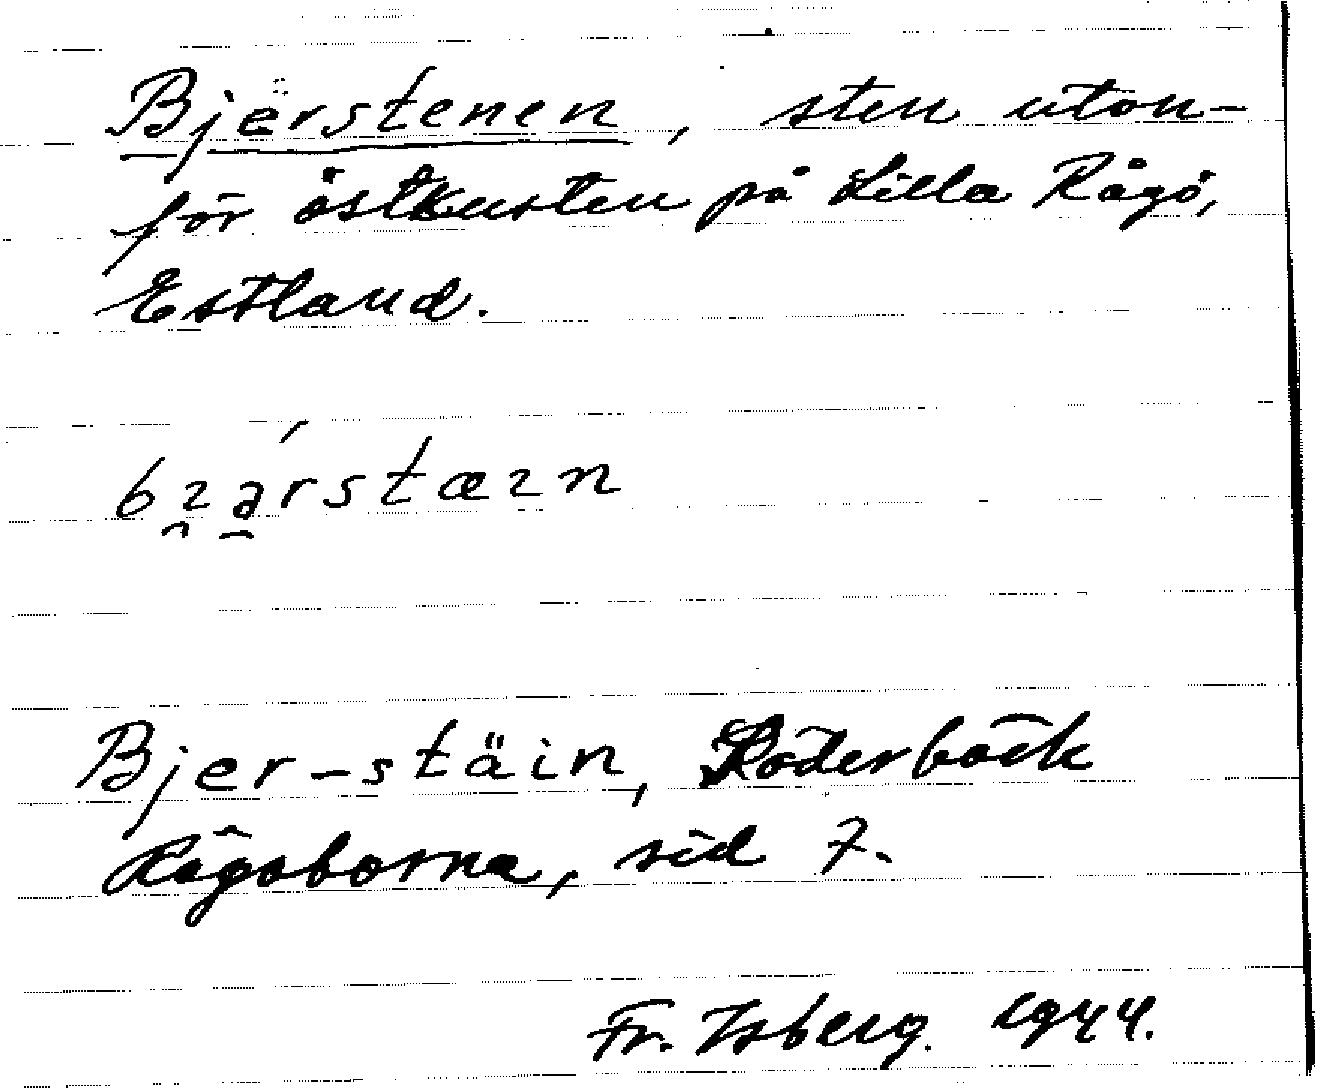 Bjerstenen, sten utan-
för östkusten på Lilla Rågö,
Estland.
bɿá̱rstæɿn
Bjer-stäin, Söderbäck
Rågöborna, sid 7.
Fr. Isberg. 1944.